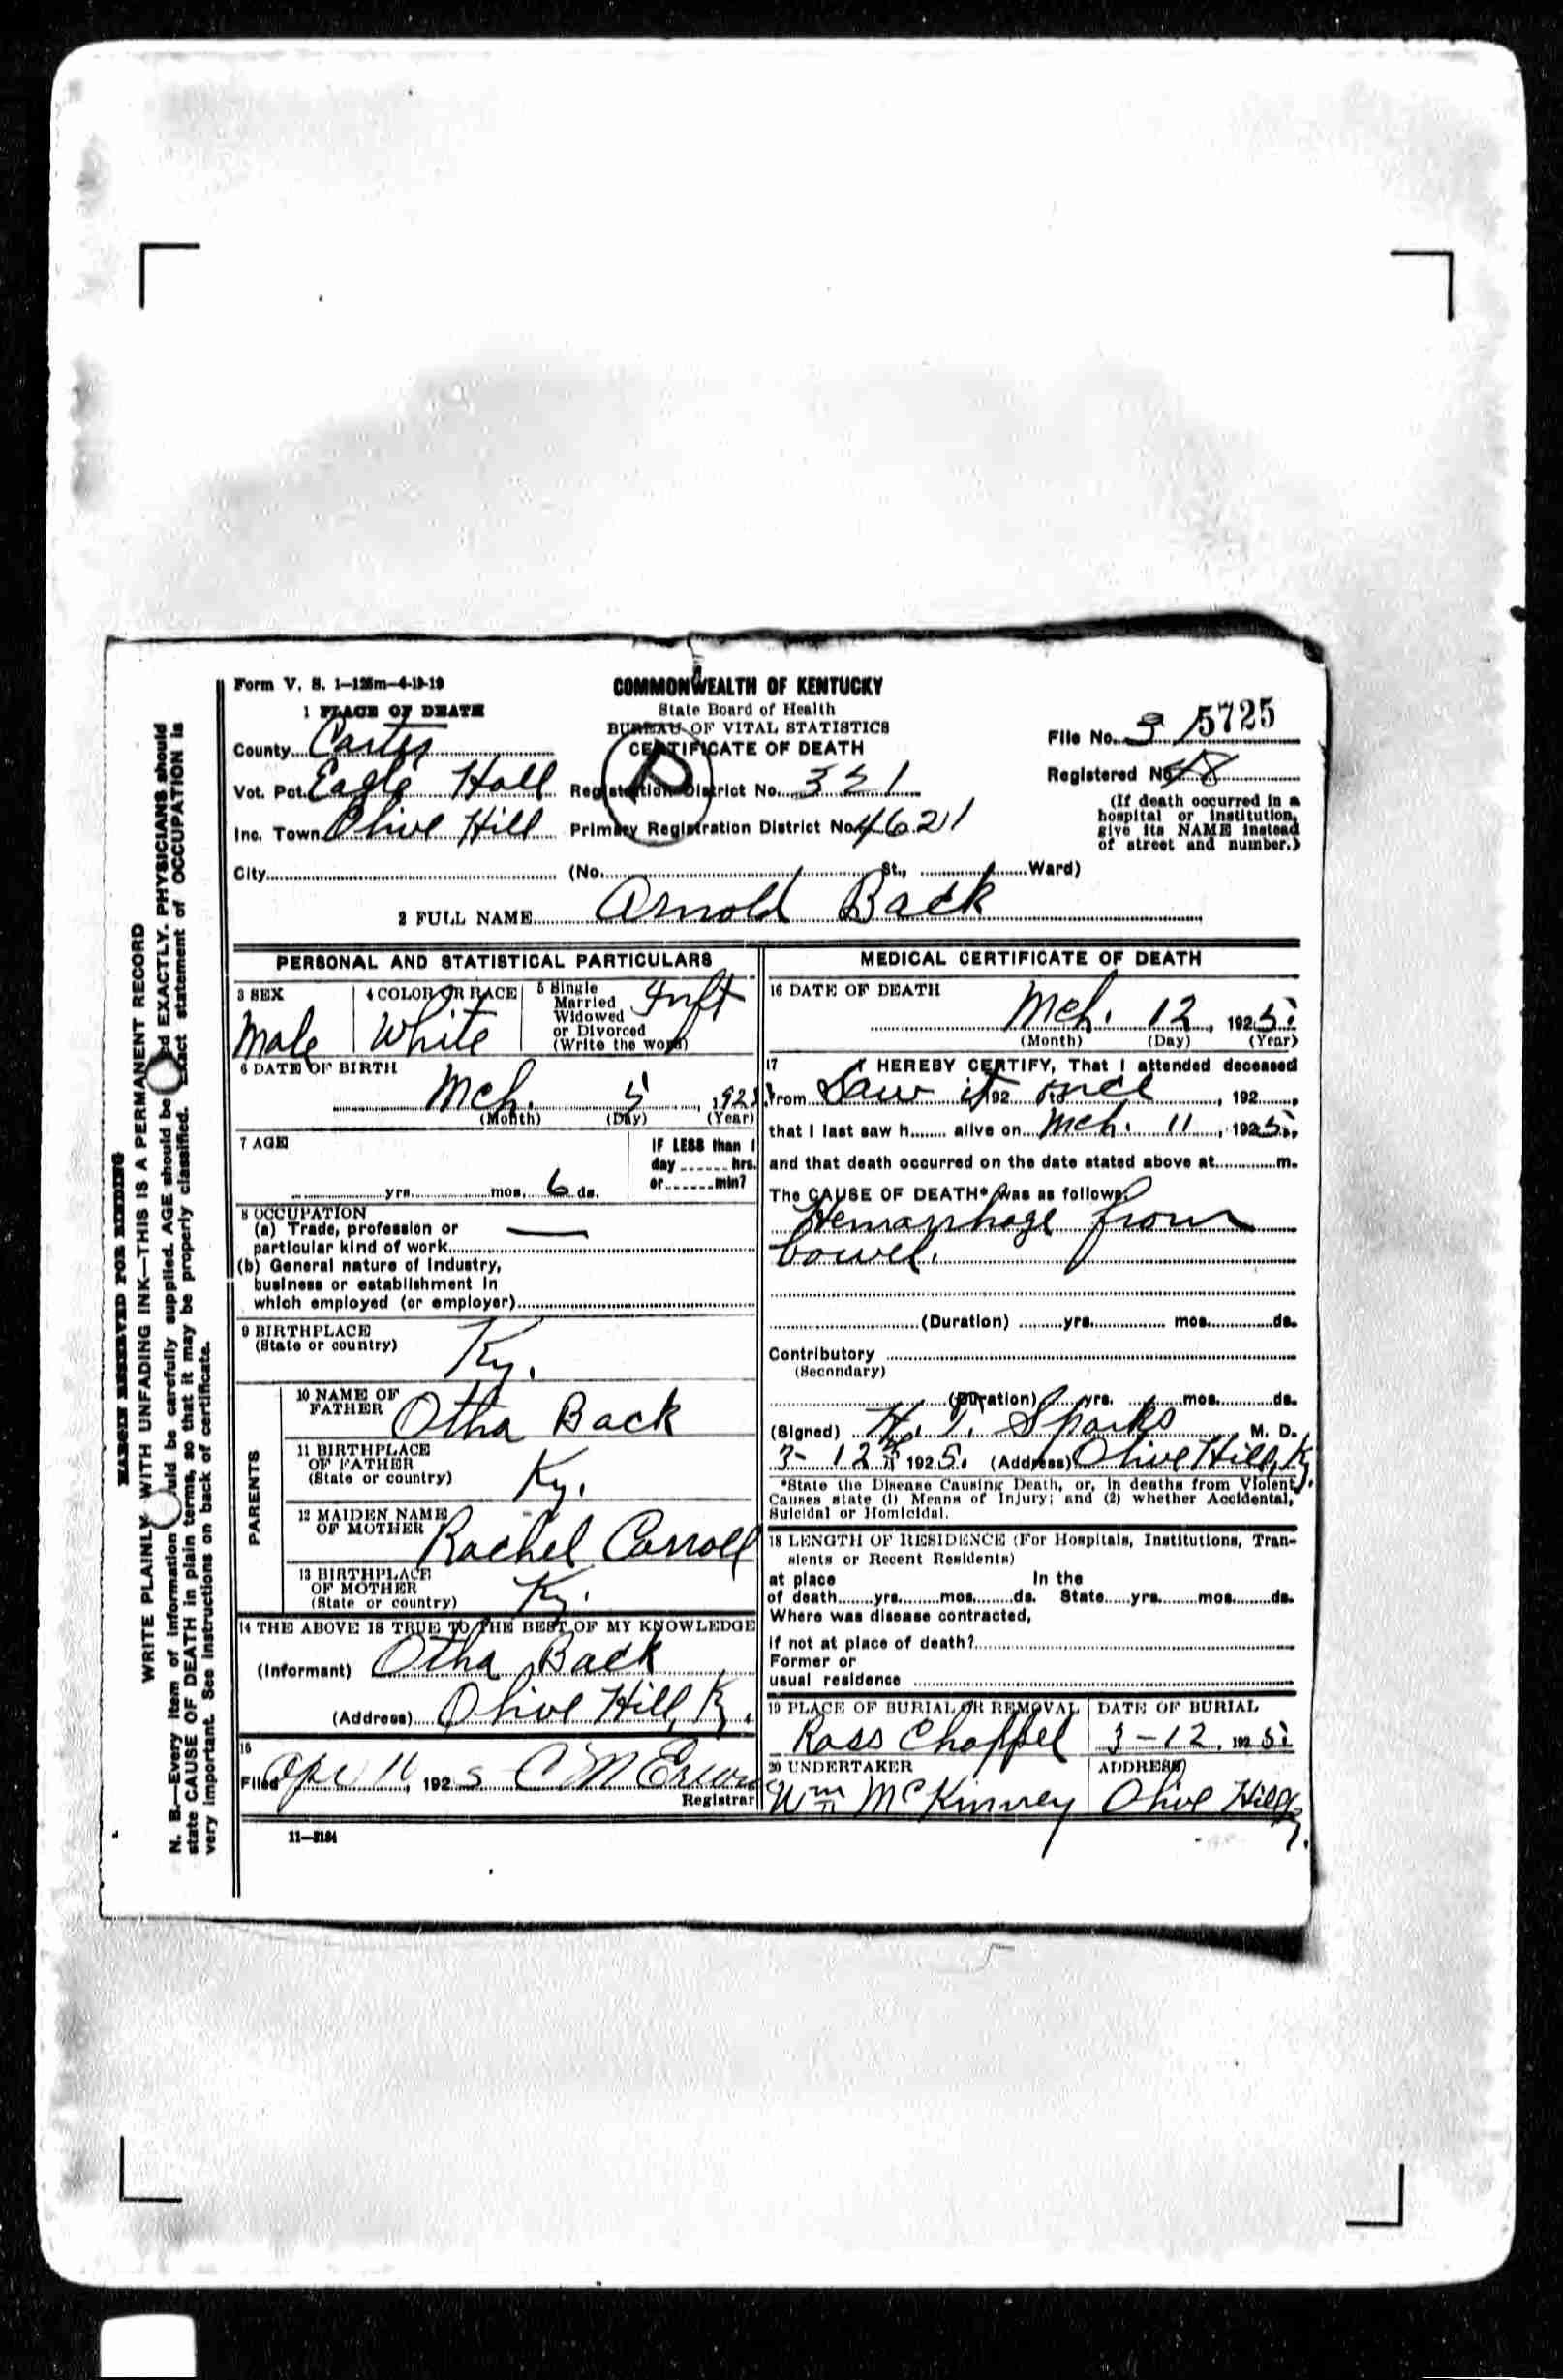 Form V. S. 1—125m—4-19-19
COMMONWEALTH OF KENTUCKY
State Board of Health
BUREAU OF VITAL STATISTICS
CERTIFICATE OF DEATH
1 PLACE OF DEATH
County Carter
Vot. Pct. Eagle Hall
Inc. Town Olive Hill
City
Registration District No. 321
Primary Registration District No. 4621
(No. St., Ward)
File No. 5725
Registered No. 48
(If death occurred in a
hospital or institution,
give its NAME instead
of street and number.)
2 FULL NAME Arnold Back
PERSONAL AND STATISTICAL PARTICULARS
3 SEX
Male
4 COLOR OR RACE
White
5 Single
Married
Widowed
or Divorced
(Write the word)
Inft
6 DATE OF BIRTH
Mch. 5, 192
(Month) (Day) (Year)
7 AGE
yrs. mos. 6 ds.
IF LESS than 1
day hrs.
or min?
8 OCCUPATION
(a) Trade, profession or
particular kind of work
(b) General nature of industry,
business or establishment in
which employed (or employer)
9 BIRTHPLACE
(State or country)
Ky.
PARENTS
10 NAME OF
FATHER
Otha Back
11 BIRTHPLACE
OF FATHER
(State or country)
Ky.
12 MAIDEN NAME
OF MOTHER
Rachel Carroll
13 BIRTHPLACE
OF MOTHER
(State or country)
Ky.
14 THE ABOVE IS TRUE TO THE BEST OF MY KNOWLEDGE
(Informant) Otha Back
(Address) Olive Hill, Ky.
15
Filed Apr 11, 1925 C M Erwin
Registrar
11—3184
MEDICAL CERTIFICATE OF DEATH
16 DATE OF DEATH
Mch. 12, 1925.
(Month) (Day) (Year)
17 I HEREBY CERTIFY, That I attended deceased
from Saw it 192 once, 192,
that I last saw h alive on Mch. 11, 1925,
and that death occurred on the date stated above at m.
The CAUSE OF DEATH* was as follows:
Hemarrhage from
bowel.
(Duration) yrs. mos. ds.
Contributory
(Secondary)
(Duration) yrs. mos. ds.
(Signed) H. T. Sparks M. D.
3-12 1925. (Address) Olive Hill, Ky.
*State the Disease Causing Death, or, in deaths from Violent
Causes state (1) Means of Injury; and (2) whether Accidental,
Suicidal or Homicidal.
18 LENGTH OF RESIDENCE (For Hospitals, Institutions, Tran-
sients or Recent Residents)
at place In the
of death yrs. mos. ds. State yrs. mos. ds.
Where was disease contracted,
if not at place of death?
Former or
usual residence
19 PLACE OF BURIAL OR REMOVAL
Ross Chappel
DATE OF BURIAL
3-12, 1925
20 UNDERTAKER
Wm McKinney
ADDRESS
Olive Hill, Ky.
MARGIN RESERVED FOR BINDING
WRITE PLAINLY WITH UNFADING INK—THIS IS A PERMANENT RECORD
N. B.—Every item of information should be carefully supplied. AGE should be stated EXACTLY. PHYSICIANS should
state CAUSE OF DEATH in plain terms, so that it may be properly classified. Exact statement of OCCUPATION is
very important. See instructions on back of certificate.